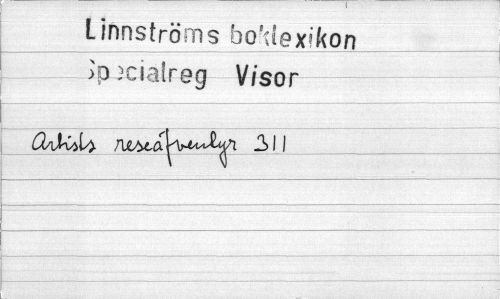 Linnströms boklexikon
Specialreg Visor
Artists reseäfventyr 311